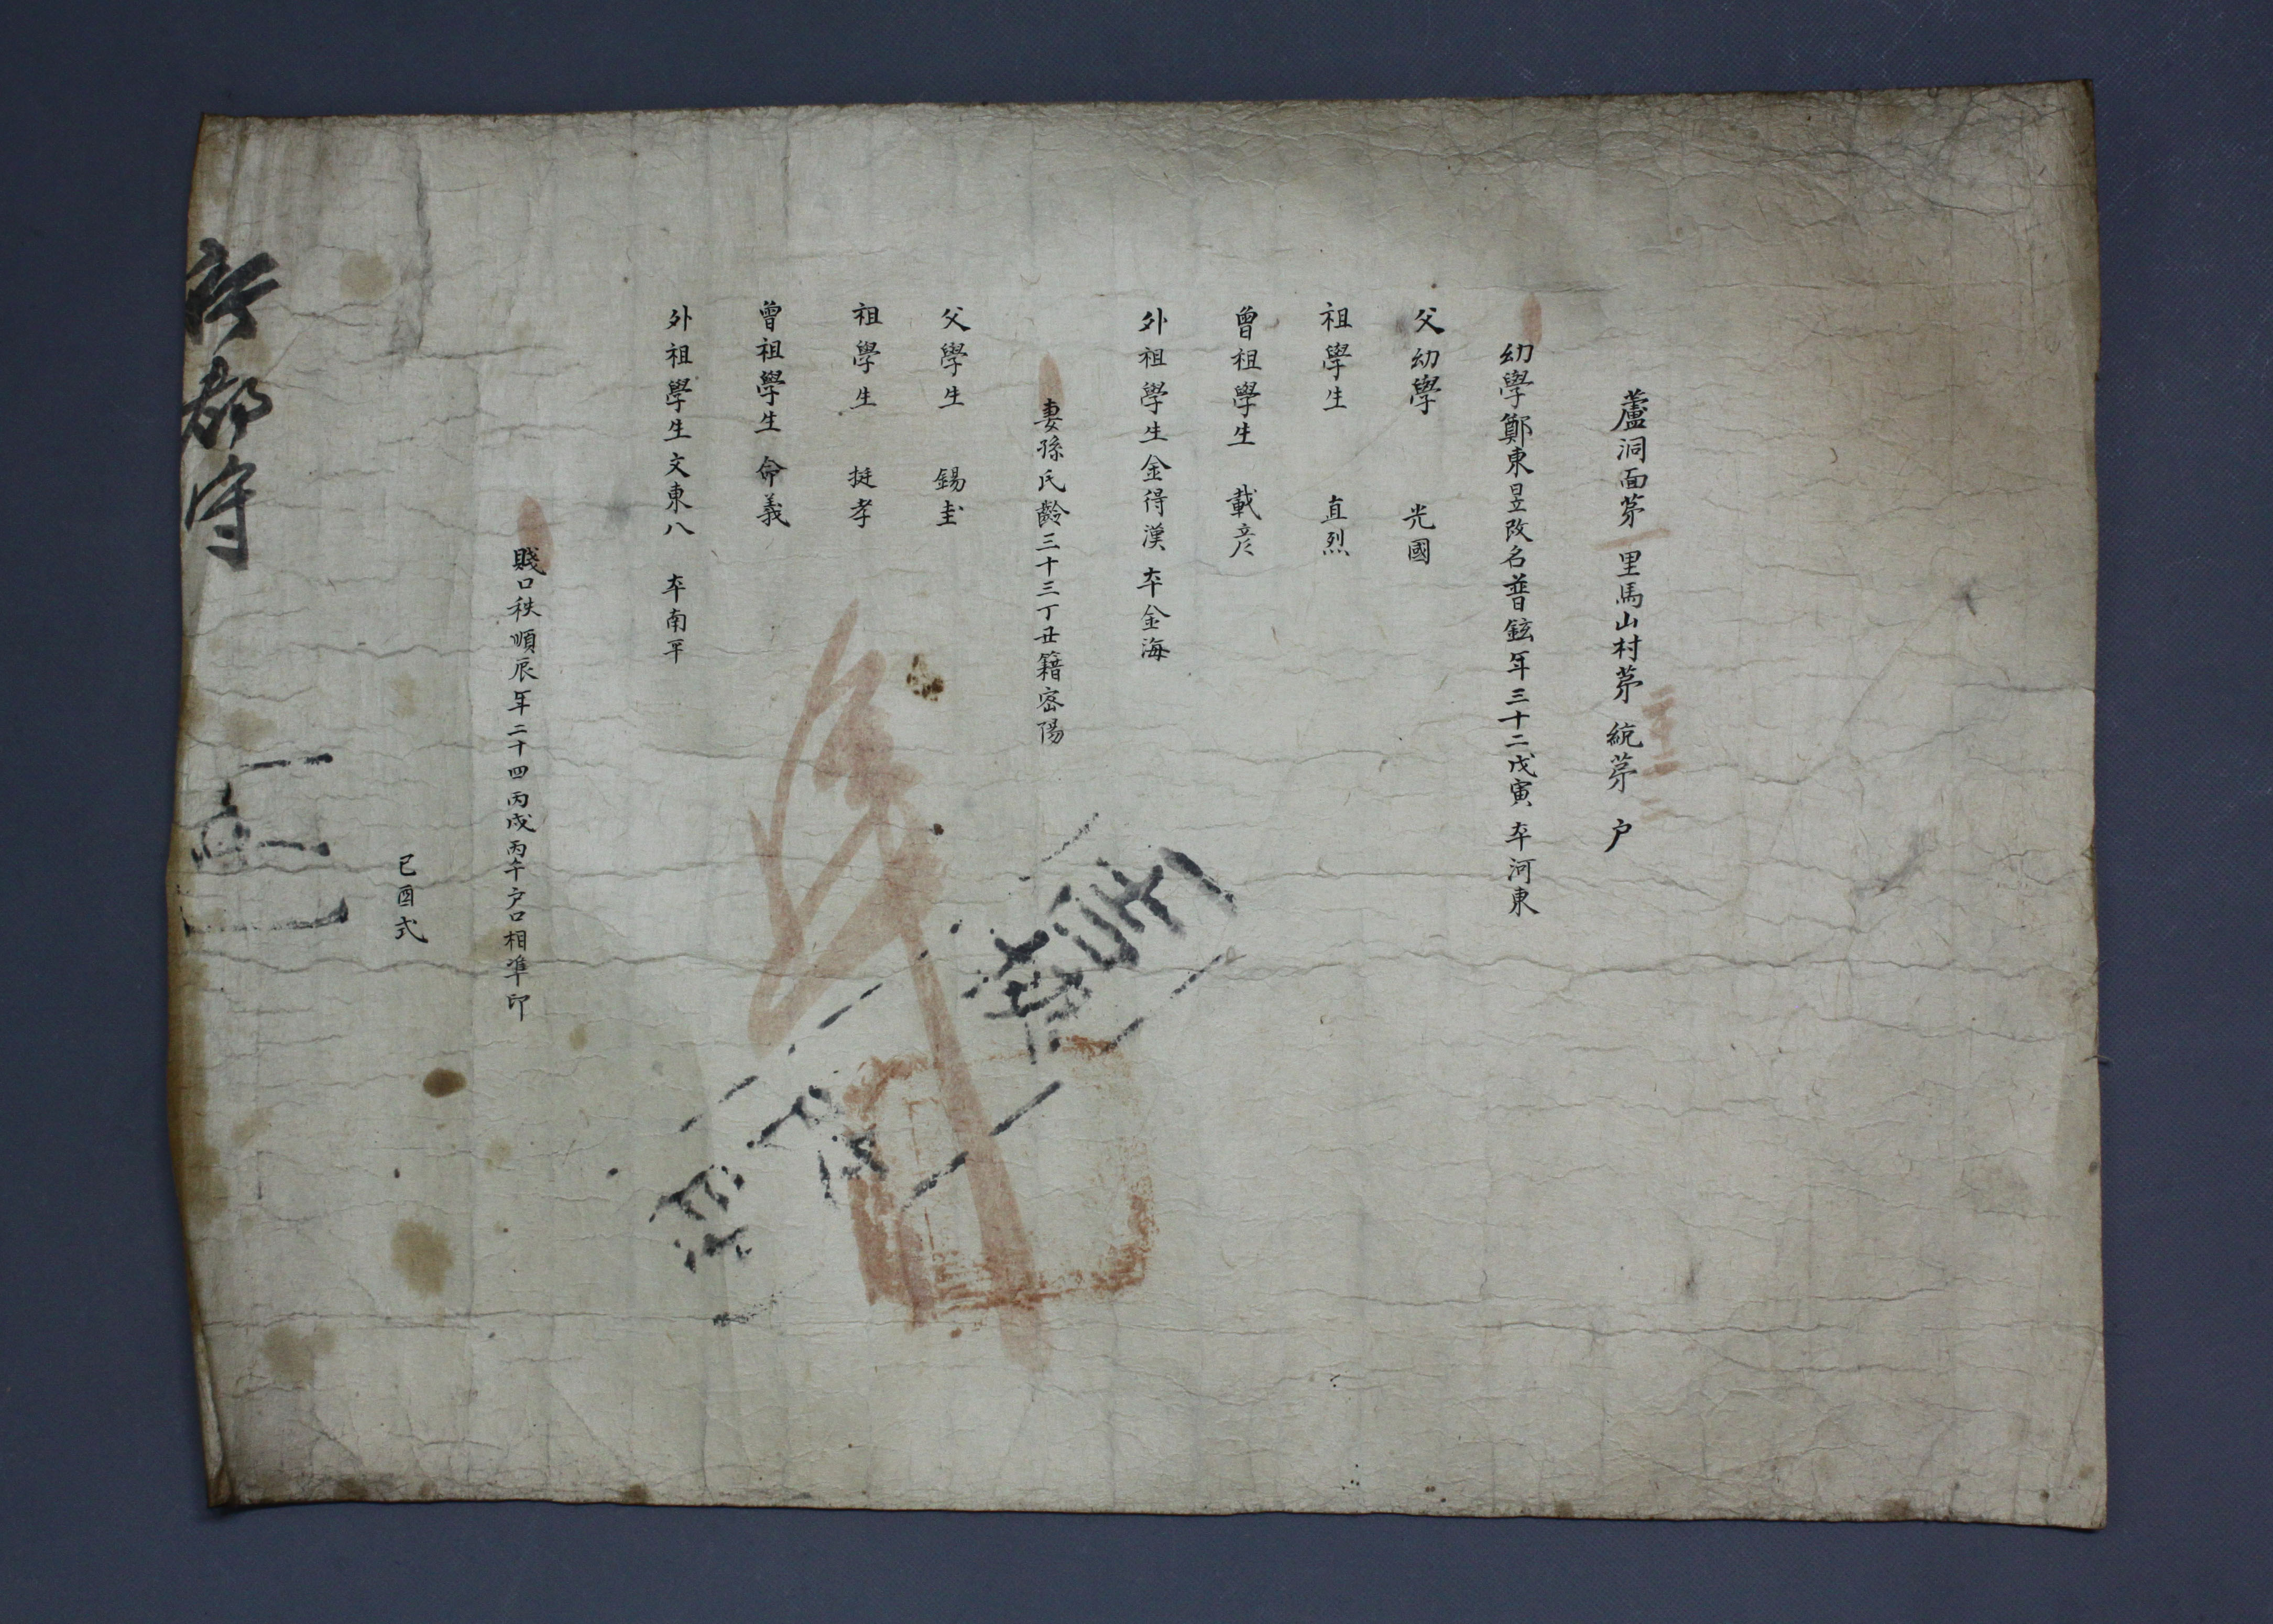 蘆洞面苐一里馬山村苐 統苐 户
幼學鄭東昱改名普鉉年三十二戊寅 夲河東
父幼學 光國
祖學生 直烈
曾祖學生 載彦
外祖學生金得漢 夲金海
妻孫氏齡三十三丁丑籍密陽
父學生 錫圭
祖學生 挺孝
曾祖學生 命義
外祖學生文東八 夲南平
賤口秩順辰年二十四丙戌丙午户口相準印
己酉式
行都守